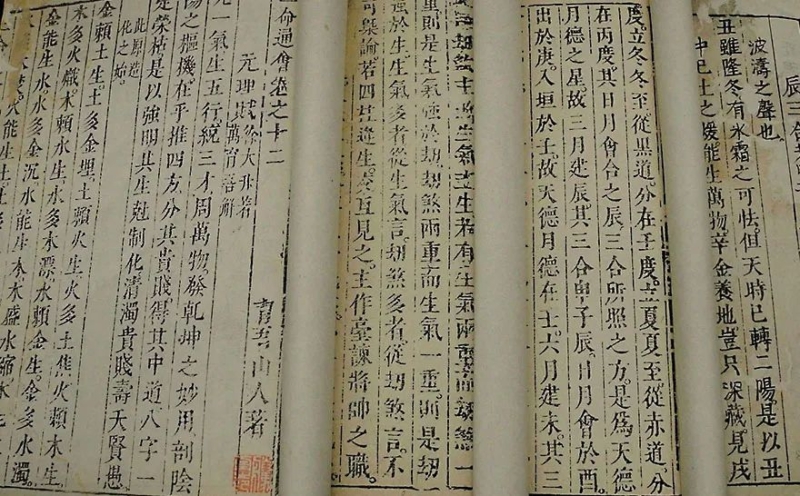 辰三
波濤之聲也。
丑雖隆冬有氷霜之可怯。但天時已轉二陽。是以丑
中己土之煖。能生萬物。辛金養地。豈只深藏。見戌
度。立冬冬至。從黒道。分在壬度。立夏夏至。從赤道。分
在丙度。其日月會合之辰。三合所照之方。是為天德
月德之星。故三月建辰。其三合申子辰。日月會於酉。
出於庚。入垣於壬。故天德月德在壬。六月建未。其三
劫煞主 生氣主生。若有生氣兩重而劫煞一
重。則是生氣強於劫。劫煞兩重而生氣一重。則是劫
強於生。生氣多者。從生氣言。劫煞多者。從劫煞言。不
可槩論。若四 逢生。交互見之。主作臺諫將帥之職。
命通會卷之十二
育吾山人著
元理賦 徐大升著 萬育吾解
元一氣生五行。統三才周萬物。發乾坤之妙用剖陰
陽之樞機。在乎推四方。分其貴賤。得其中道。八字一
定榮枯。是以強明其生尅制化清濁貴賤壽夭賢愚。
此原造化之始。
金賴土生。土多金埋。土賴火生。火多土焦。火賴木生。
木多火熾。木賴水生。水多木漂。水賴金生。金多水濁。
金能生水。水多金沉。水能生木。木盛水縮。木
火能生土。